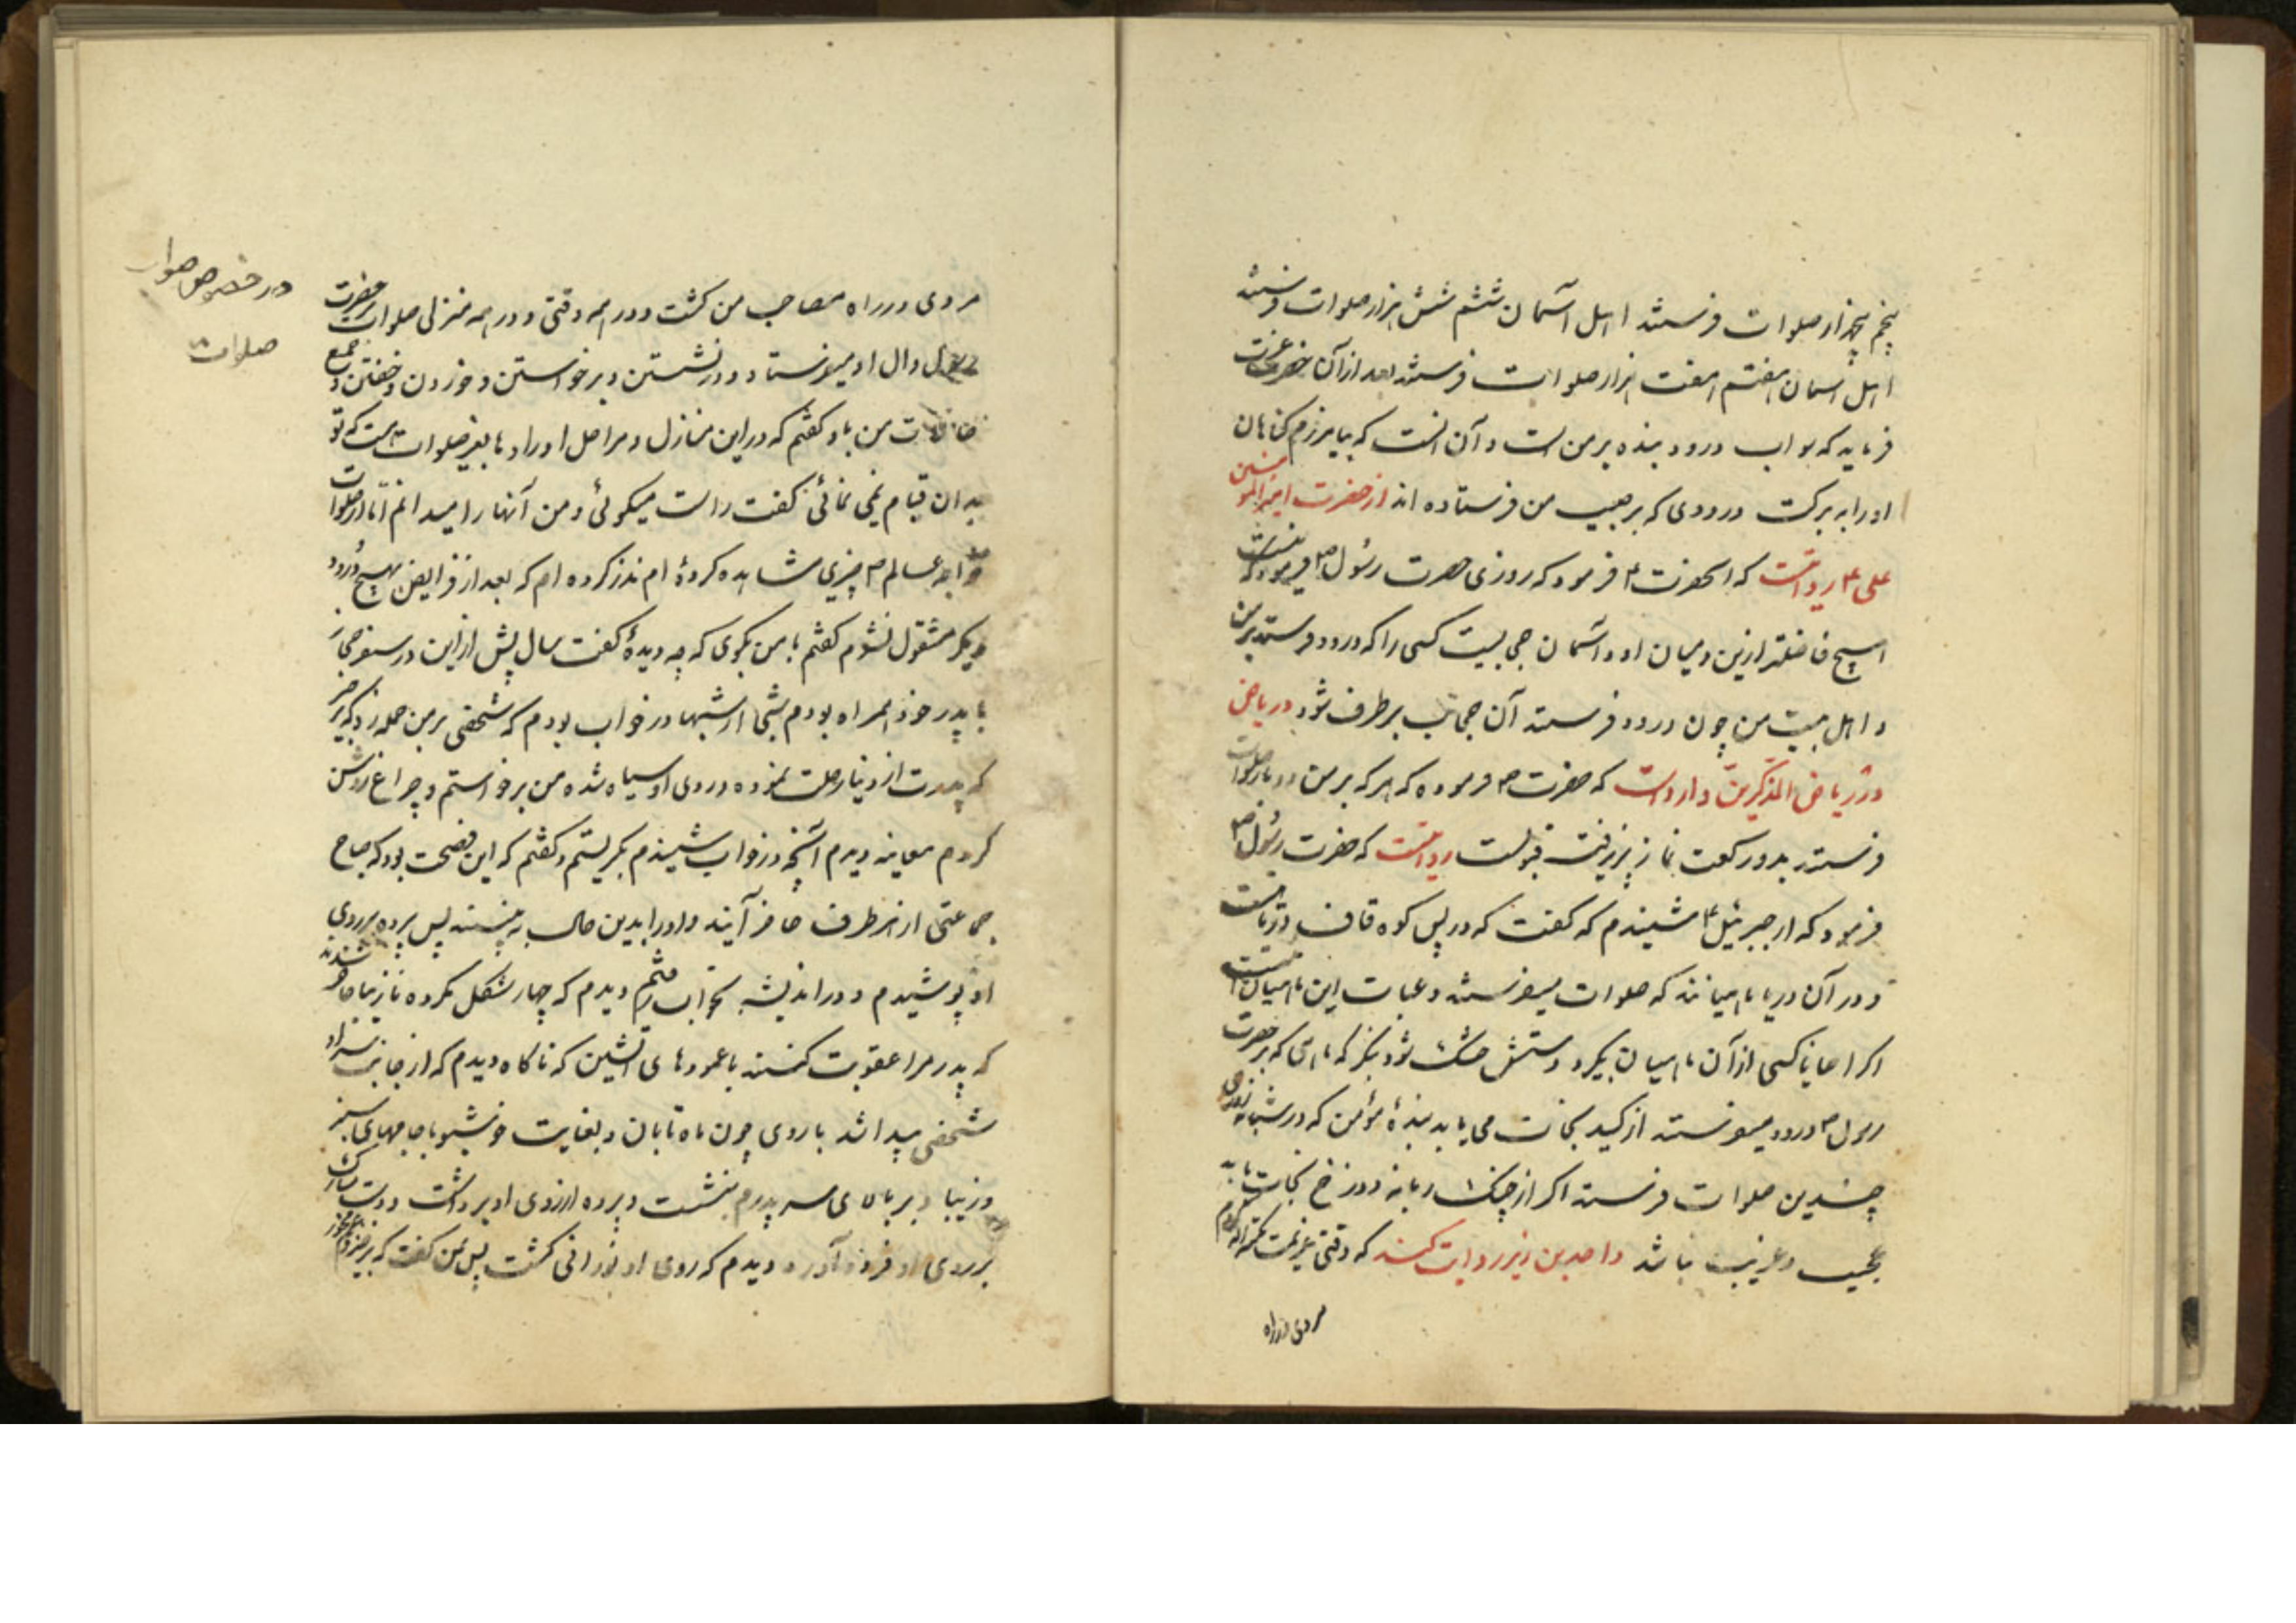 پنجم پنجهزار صلوات فرستند اهل آسمان ششم شش هزار صلوات فرستند
اهل اسمان هفتم هفت هزار صلوات فرستند بعد از آن حضرت عزت
فرماید که ثواب درود بنده بر من است و آن انست که بیامرزم گناهان
او را به برکت درودی که بر حبیب من فرستاده اند از حضرت امیر المومنین
علی ع روایتست که انحضرت ع فرمود که روزی حضرت رسول ص فرمود که نیست
هیچ فاضلتر ازین و میان او و آسمان حجابیست کسی را که درود فرستد بر من
و اهل بیت من چون درود فرستد آن حجاب بر طرف شود در یاض
در ریاض الذاکرین وارد است که حضرت ص فرموده که هر که بر من دو بار صلوات
فرستد بدو رکعت نماز پذیرفته قبولست روایتست که حضرت رسول ص
فرمود که از جبرئیل ع شنیدم که گفت که در پس کوه قاف دریائیست
و در آن دریا ماهیانند که صلوات میفرستند و عبادت این ماهیان اینست
اکر احیانا کسی از آن ماهیان بگیرد دستش خشک شود بنگر که ماهی که بر حضرت
رسول ص درود میفرستد از کید نجات می یابد بندۀ مؤمن که در شبانه روزی
چندین صلوات فرستد اکر از چنگ زبانه دوزخ نجات یابد
عجیب و غریب نباشد واحد بن زیر روایت کند که وقتی عزیمت مکه کردم
مردی در راه
در خصوص صلوات
صلوات
مردی در راه مصاحب من گشت و در همه وقتی و در همه منزلی صلوات بر حضرت
رسول و ال او میفرستاد و در نشستن و برخواستن و خوردن و خفتن و جمیع
من باو گفتم که در این منازل و مراحل اوراد ما بغیر صلوات هست که تو
بدان قیام نمی نمائی گفت راست میگوئی و من آنها را میدانم اما از صلوات
خواجه عالم ص چیزی مشاهده کردۀ ام نذر کرده ام که بعد از فرایض بهیچ ورد
دیگر مشغول نشوم گفتم با من بگوی که چه دیدۀ گفت سال پیش از این در سفر حجاز
با پدر خود همراه بودم شبی از شبها در خواب بودم که شخصی بر من حمله زد که برخیز
که پدرت از دنیا رحلت نموده و روی او سیاه شده من برخواستم و چراغ روشن
کردم معاینه دیدم آنچه در خواب شنیدم بگریستم و گفتم که این فضیحت بود که صباح
جماعتی از هر طرف حاضر آیند و او را بدین حال به بینند پس پرده بر روی
او پوشیدم و در اندیشه بخواب رفتم دیدم که چهار شکل مکروه نازیبا حاضر شدند
که پدر مرا عقوبت کنند با عمودهای آتشین که ناگاه دیدم که از جانب
شخصی پیدا شد با روی چون ماه تابان و بغایت خوشبو با جامهای سبز
و زیبا و بر بالای سر پدرم بنشست و پرده از روی او برداشت و دست مبارک
بر روی او فرود آورد دیدم که روی او نورانی گشت پس بمن گفت که برخیز